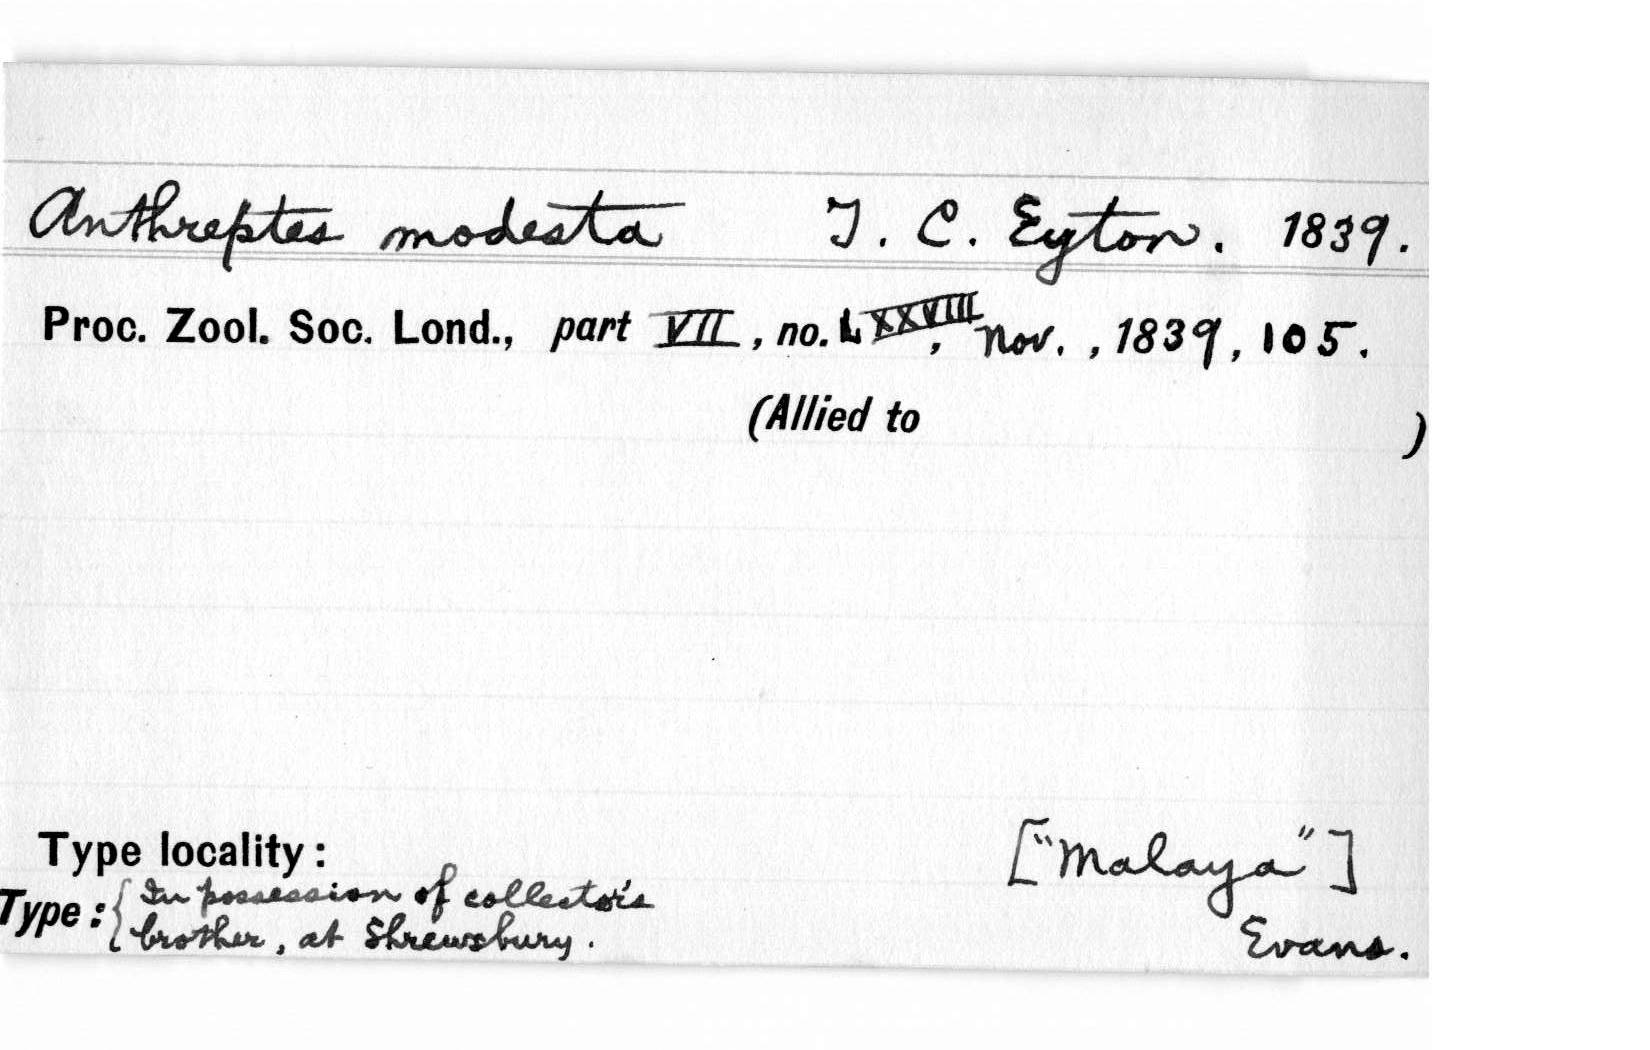 Anthreptes modesta T. C. Eyton. 1839.
Proc. Zool. Soc. Lond., part VII, no. LXXVIII, Nov., 1839, 105.
(Allied to )
Type locality: ["Malaya"]
Type: { In possession of collector's
brother, at Shrewsbury. Evans.